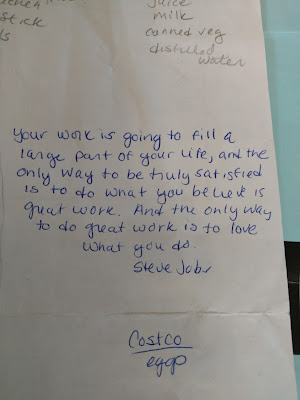 stick
juice
milk
canned veg
distilled
water
Your work is going to fill a
large part of your life, and the
only way to be truly satisfied
is to do what you believe is
great work. And the only way
to do great work is to love
what you do.
Steve Jobs
Costco
eggs